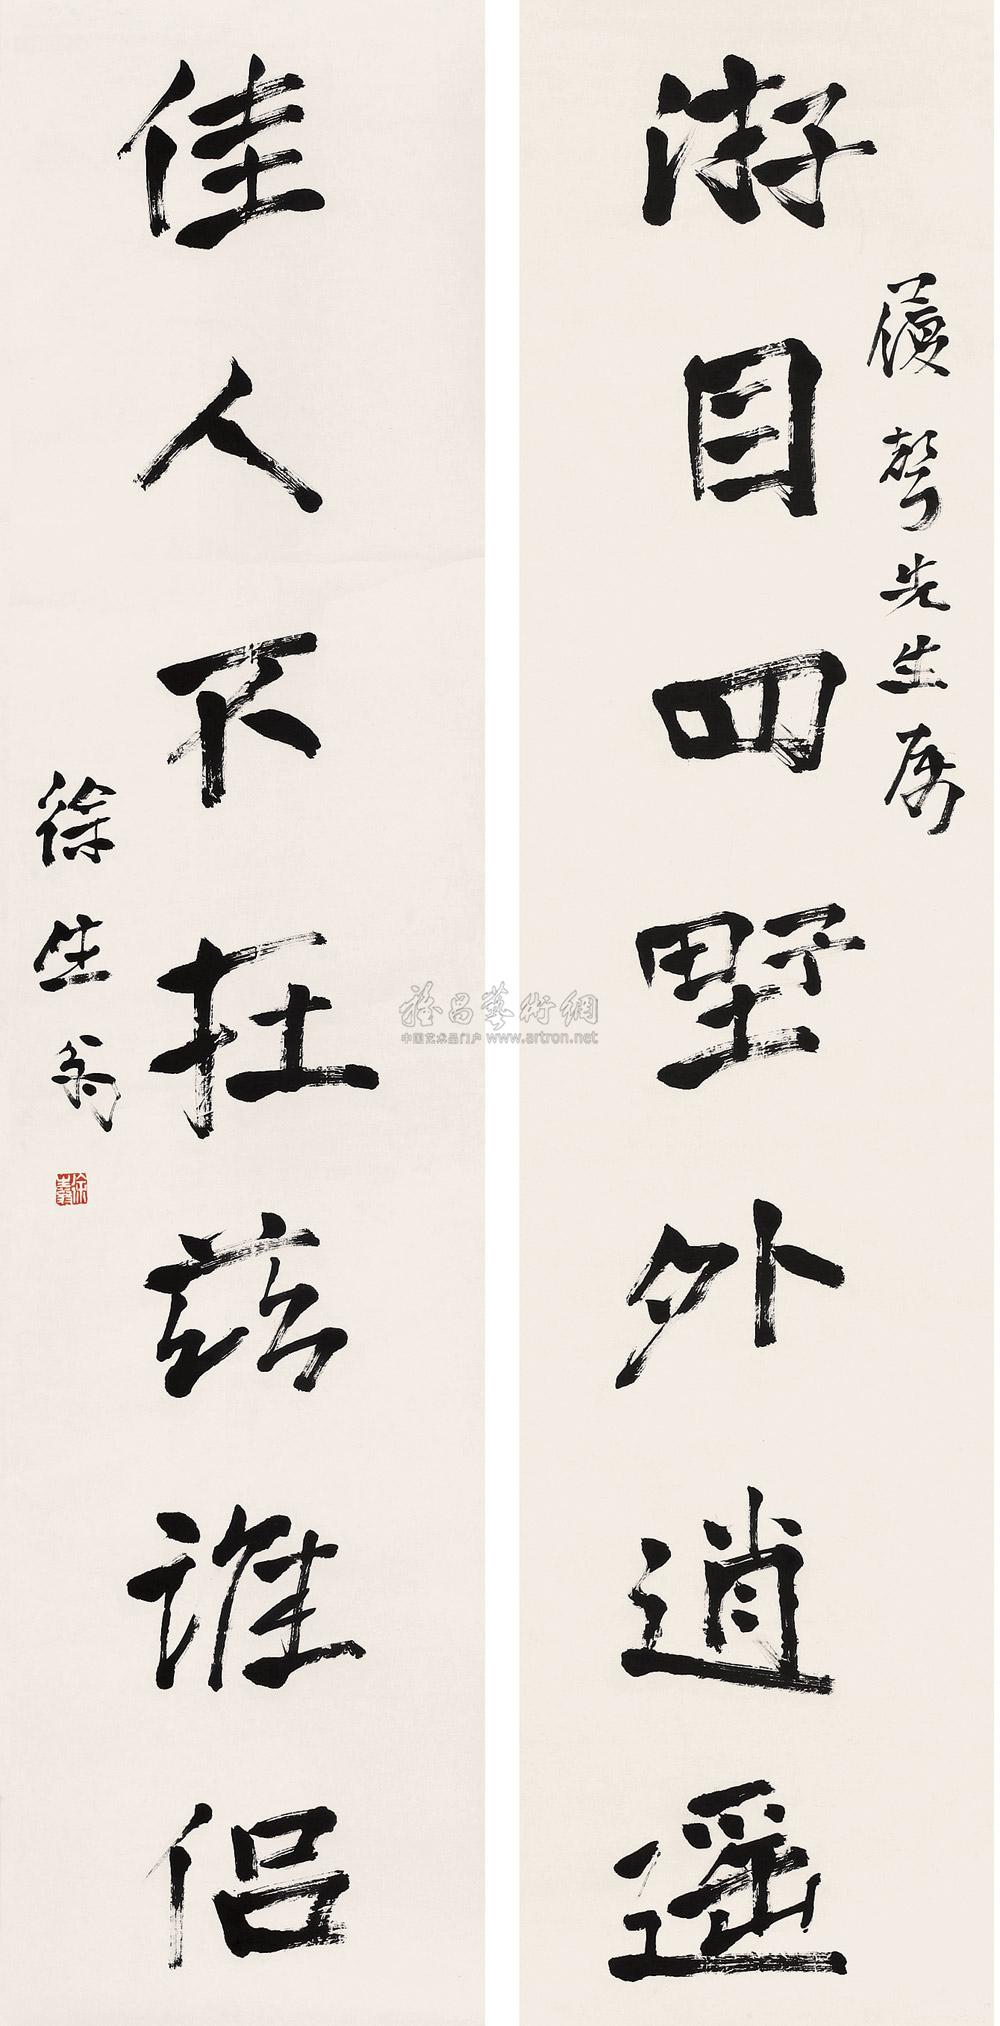 游目四野外逍遥
履先生属
佳人不在兹谁侣
徐生翁
雅昌藝術網
中国艺术品门户 www.artron.net